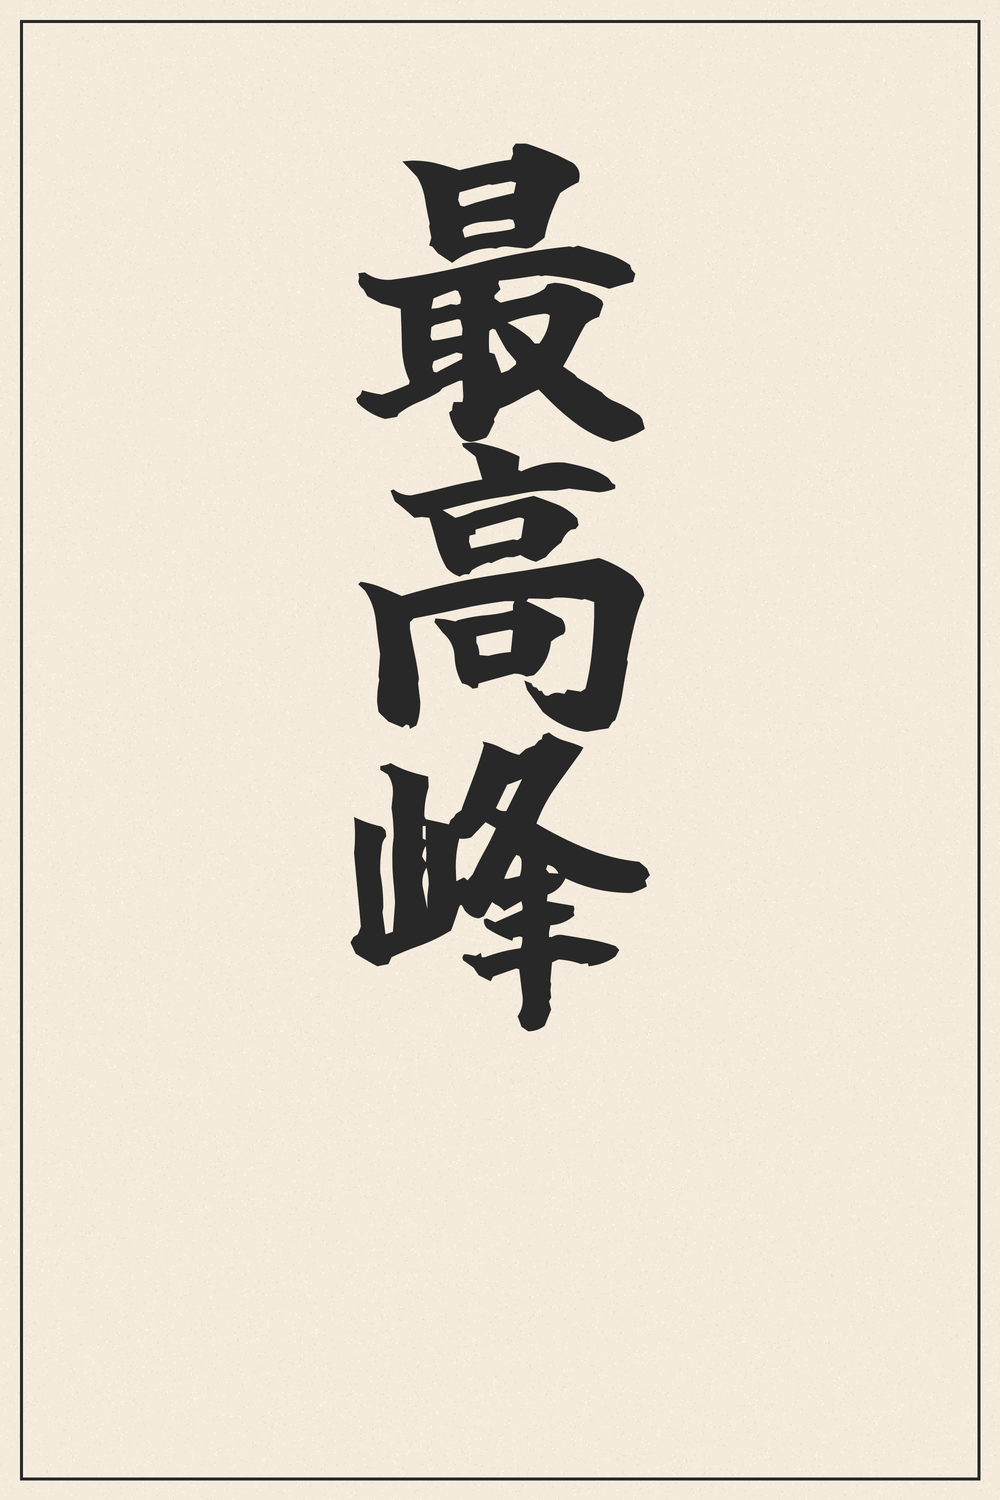 最高峰